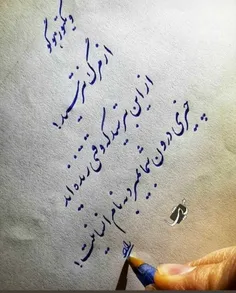 ویکتور هوگو
از مرگ نترسید!
از این بترسید که وقتی زنده اید
چیزی درون شما بمیرد به نام انسانیت!